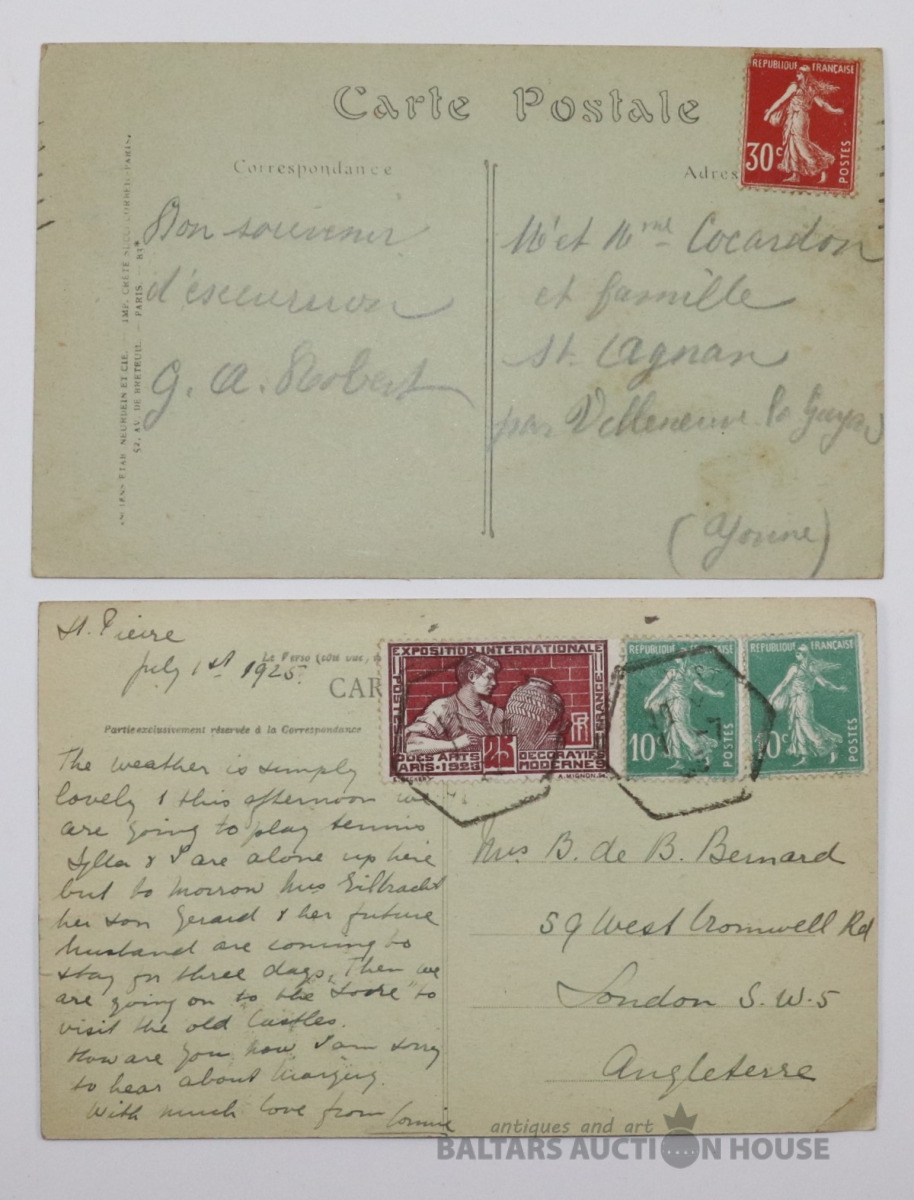 Carte Postale
Correspondance
Adres
RÉPUBLIQUE FRANÇAISE
30c
POSTES
ANCIENS ETAB. NEURDEIN ET CIE. — IMP. CRÉTÉ SUCC. CORBEIL-PARIS.
52, AV. DE BRETEUIL — PARIS.
Bon souvenir
d'excursion
G. A. Robert
Mr et Mme Cocardon
et famille
St. Agnan
par Villeneuve la Guyard
(Yonne)
St. Pierre
July 1st 1925
Le Verso (côté vue,
CAR
Partie exclusivement réservée à la Correspondance
EXPOSITION INTERNATIONALE
POSTES
FRANCE
RF
DES ARTS
DÉCORATIFS
PARIS·1925
MODERNES
25
A. MIGNON.
RÉPUBLIQUE FRANÇAISE
10c
POSTES
RÉPUBLIQUE FRANÇAISE
10c
POSTES
The weather is simply
lovely & this afternoon we
are going to play tennis
& I are alone up here
but to morrow Mrs
her son Gerard & her future
husband are coming to
stay for three days. Then we
are going on to the "Loire" to
visit the old Castles.
How are you now I am sorry
to hear about
With much love from Connie
Mrs B. de B. Bernard
59 West Cromwell Rd
London S.W.5
Angleterre
antiques and art
BALTARS AUCTION HOUSE